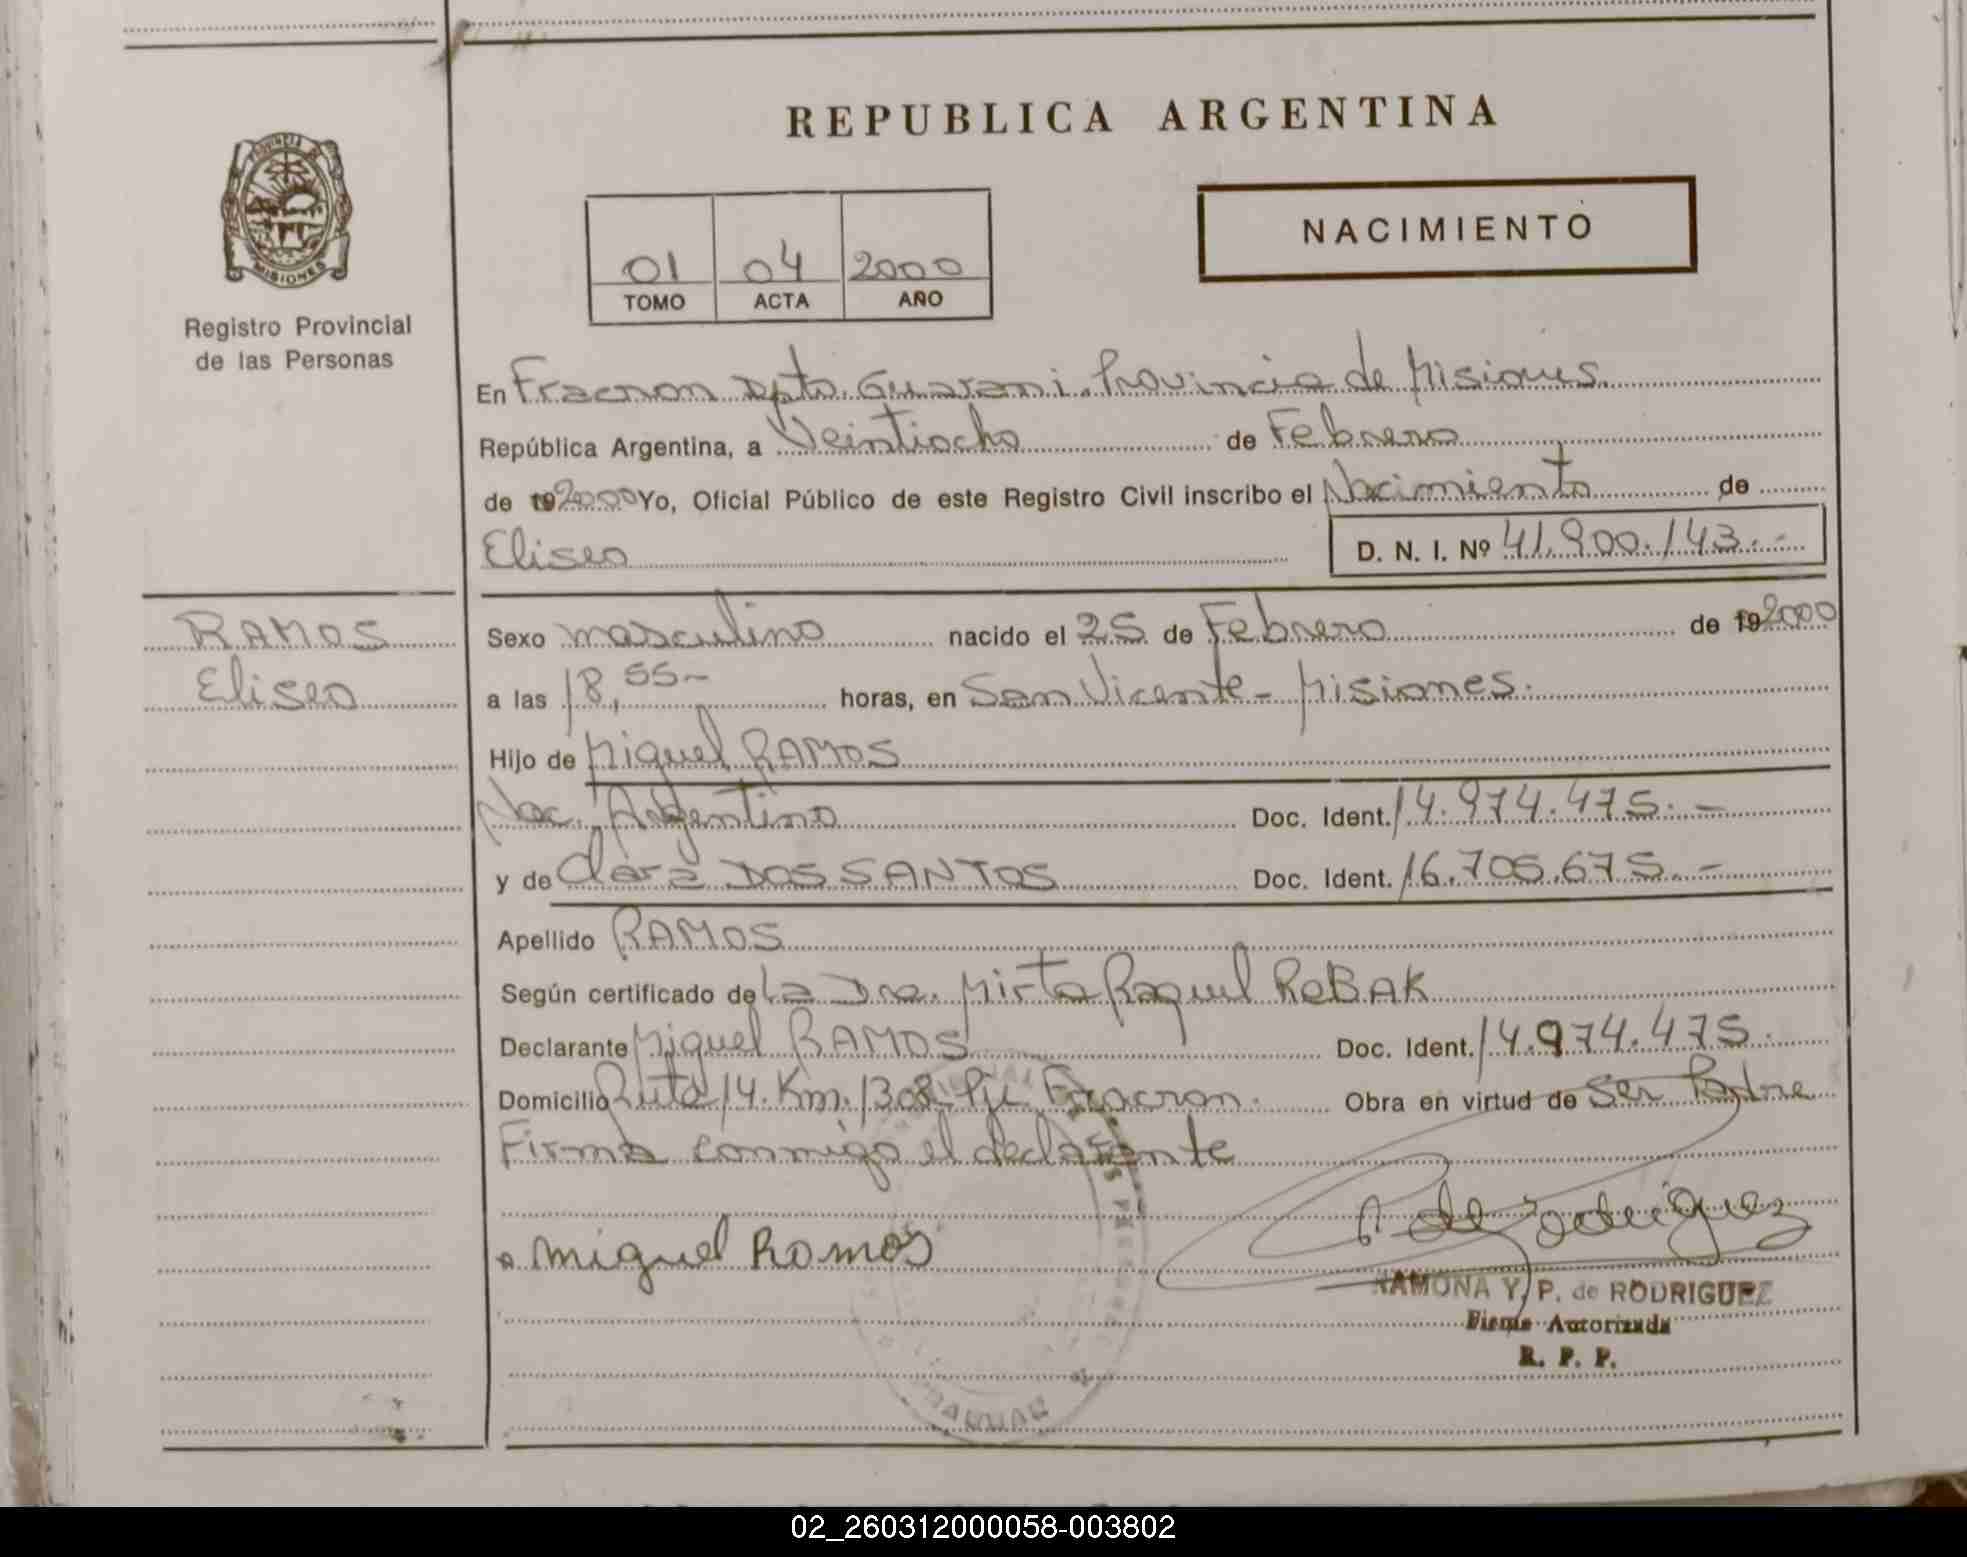 REPUBLICA ARGENTINA
PROVINCIA DE
MISIONES
Registro Provincial
de las Personas
NACIMIENTO
01 04 2000
TOMO ACTA AÑO
En Fracron Dpto. Guarani. Provincia de Misiones.
República Argentina, a Veintiocho de Febrero
de 192000 Yo, Oficial Público de este Registro Civil inscribo el Nacimiento de
Eliseo D. N. I. Nº 41.900.143.-
RAMOS
Eliseo
Sexo masculino nacido el 25 de Febrero de 192000
a las 18,55- horas, en San Vicente - Misiones.
Hijo de Miguel RAMOS
Nac. Argentino Doc. Ident. 14.974.475.-
y de Clara DOS SANTOS Doc. Ident. 16.705.675.-
Apellido RAMOS
Según certificado de La Dra. Mirta Raquel ReBAK
Declarante Miguel RAMOS Doc. Ident. 14.974.475.
Domicilio Ruta 14. Km. 1308 Pje Fracron. Obra en virtud de Ser Padre
Firma conmigo el declarante
Miguel Ramos
de Rodriguez
RAMONA Y. P. de RODRIGUEZ
Firma Autorizada
R. P. P.
02_260312000058-003802